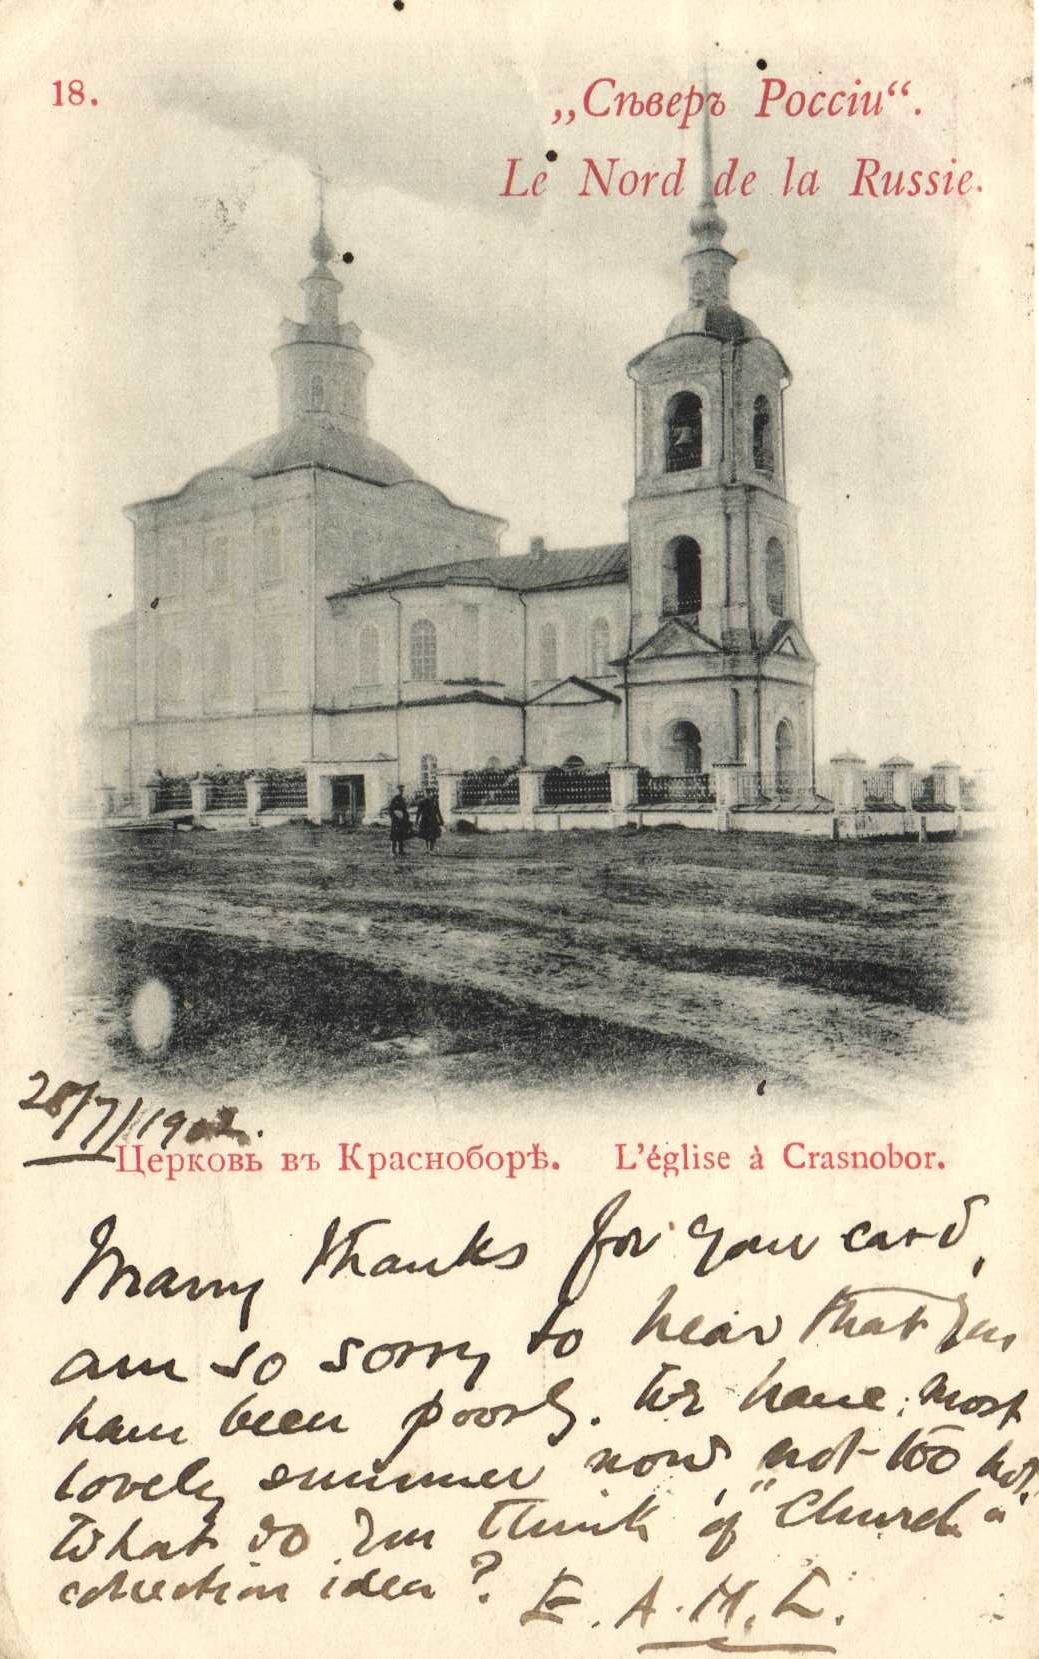 18.
„Сѣверъ Россіи“.
Le Nord de la Russie.
28/7/1902.
Церковь въ Красноборѣ. L'église à Crasnobor.
Many thanks for your card,
am so sorry to hear that you
have been poorly. We have most
lovely summer now, not too hot.
What do you think of "Church"
collection idea? E.A.M.L.